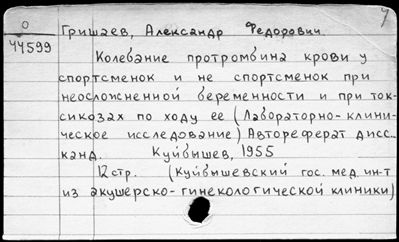 О
44599
Гришаев, Александр Федорович.
Колебание протромбина крови у
спортсменок и не спортсменок при
неосложненной беременности и при ток-
сикозах по ходу ее (Лабораторно-клини-
ческое исследование) Автореферат дисс.
канд. Куйбышев, 1955
12 стр. (Куйбышевский гос. мед. ин-т
из акушерско-гинекологической клиники)